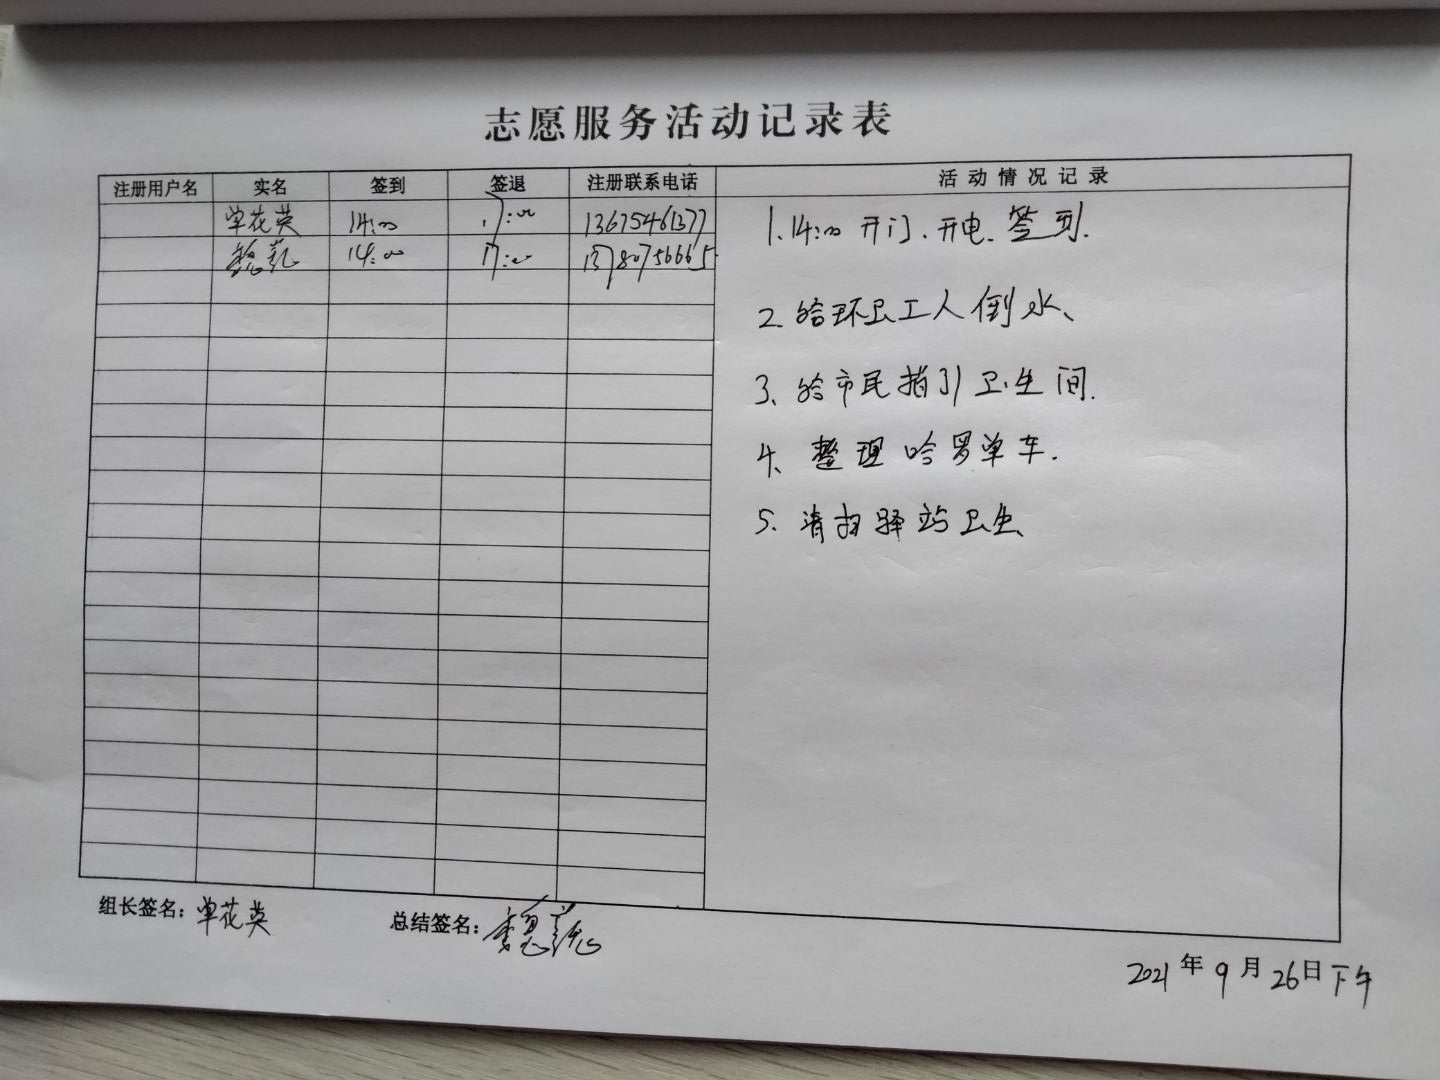 志愿服务活动记录表
注册用户名 实名 签到 签退 注册联系电话 活动情况记录
单花英 14:00 17:00 13675461377
14:00 17:00 13780756665
1.14:00 开门.开电.签到.
2.给环卫工人倒水、
3、给市民指引卫生间.
4、整理哈罗单车.
5.清扫驿站卫生
组长签名:单花英 总结签名:
2021年9月26日下午